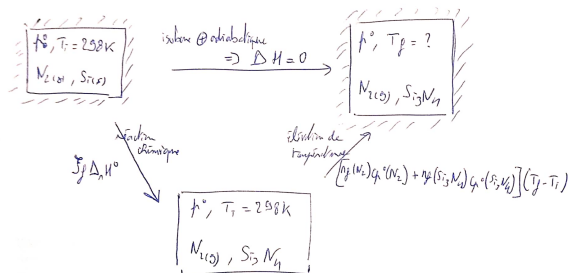 p°, Ti = 298K
N2(g), Si(s)
isobare ⊕ adiabatique
=> ΔH = 0
p°, Tf = ?
N2(g), Si3N4
réaction
chimique
ξf ΔrH°
élévation de
température
[nf(N2) cp°(N2) + nf(Si3N4) cp°(Si3N4)](Tf - Ti)
p°, Ti = 298K
N2(g), Si3N4